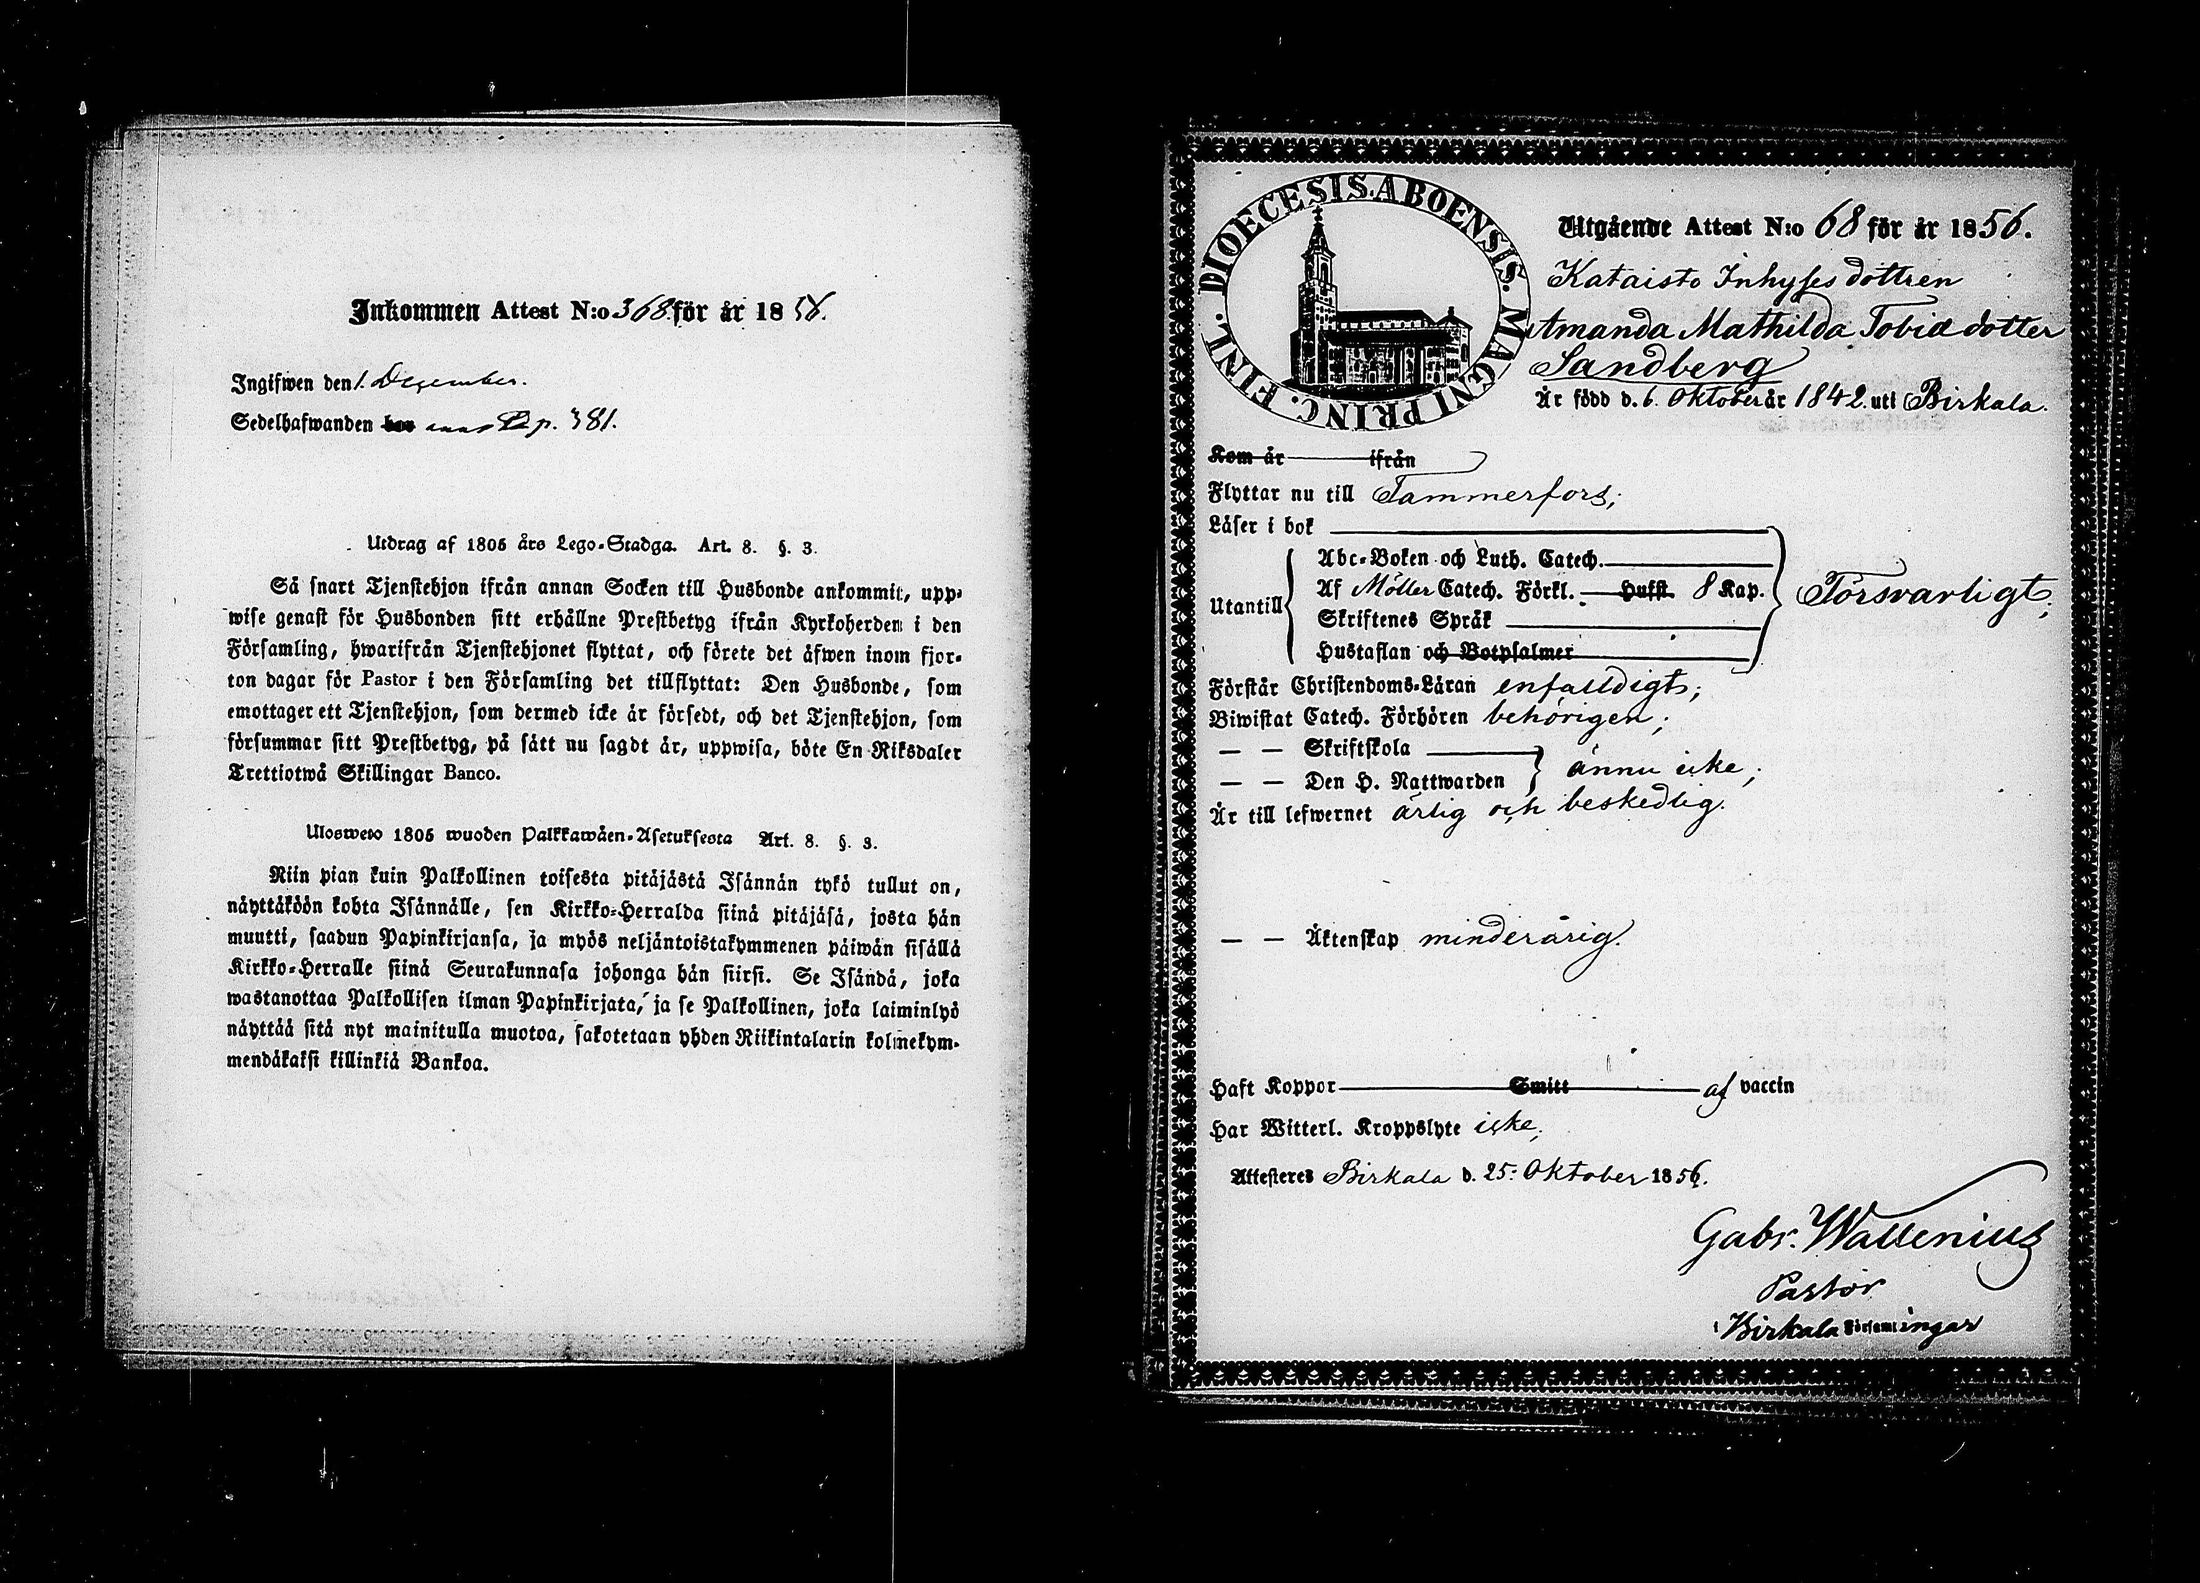 Inkommen Attest N:o 368 för år 1856.
Ingifwen den 1. December.
Sedelhafwanden bor p. 381.
Utdrag af 1805 års Lego-Stadga. Art. 8. §. 3.
Så snart Tjenstehjon ifrån annan Socken till Husbonde ankommit, upp-
wise genast för Husbonden sitt erhållne Prestbetyg ifrån Kyrkoherden i den
Församling, hwarifrån Tjenstehjonet flyttat, och förete det äfwen inom fjor-
ton dagar för Pastor i den Församling det tillflyttat: Den Husbonde, som
emottager ett Tjenstehjon, som dermed icke är försedt, och det Tjenstehjon, som
försummar sitt Prestbetyg, på sätt nu sagdt är, uppwisa, böte En Riksdaler
Trettiotwå Skillingar Banco.
Ulosweto 1805 wuoden Palkkawäen-Asetuksesta Art. 8. §. 3.
Niin pian kuin Palkollinen toisesta pitäjästä Isännän tykö tullut on,
näyttäköön kohta Isännälle, sen Kirkko-Herralda siinä pitäjäsä, josta hän
muutti, saadun Papinkirjansa, ja myös neljäntoistakymmenen päiwän sisällä
Kirkko-Herralle siinä Seurakunnasa johonga hän siirsi. Se Isändä, joka
wastanottaa Palkollisen ilman Papinkirjata, ja se Palkollinen, joka laiminlyö
näyttää sitä nyt mainitulla muotoa, sakotetaan yhden Riikintalarin kolmekym-
mendäkaksi killinkiä Bankoa.
DIOECESIS. ABOENSIS. MAGNI PRINC. FINL.
Utgående Attest N:o 68 för år 1856.
Kataisto Inhyses dottren
Amanda Mathilda Tobiæ dotter
Sandberg
Är född d. 6. Oktober år 1842. uti Birkala.
Kom år ifrån
Flyttar nu till Tammerfors;
Läser i bok
Abc-Boken och Luth. Catech.
Utantill Af Möller Catech. Förkl. Hufst. 8 Kap. Försvarligt;
Skriftenes Språk
Hustaflan och Botpsalmer
Förstår Christendoms-Läran enfalldigt;
Biwistat Catech. Förhören behörigen;
— — Skriftskola
— — Den H. Nattwarden ännu icke;
Är till lefwernet ärlig och beskedlig.
— — Äktenskap minderårig.
Haft Koppor Smitt af vaccin
Har Witterl. Kroppslyte icke;
Attesteres Birkala d. 25. Oktober 1856.
Gabr. Wallenius
Pastor
i Birkala Församlingar